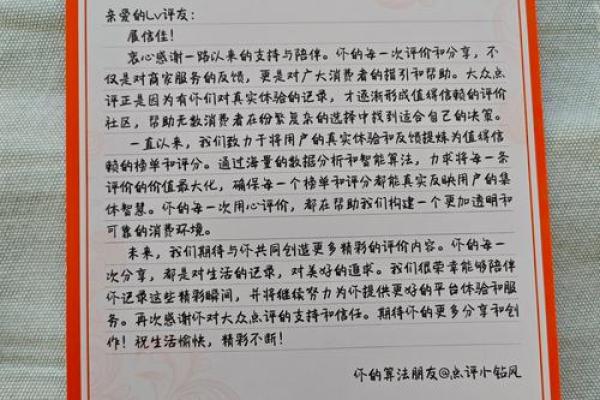 亲爱的Lv评友：
展信佳！
衷心感谢一路以来的支持与陪伴。你的每一次评价和分享，不
仅是对商家服务的反馈，更是对广大消费者的指引和帮助。大众点
评正是因为有你们对真实体验的记录，才逐渐形成值得信赖的评价
社区，帮助无数消费者在纷繁复杂的选择中找到适合自己的决策。
一直以来，我们致力于将用户的真实体验和反馈提炼为值得信
赖的榜单和评分。通过海量的数据分析和智能算法，力求将每一条
评价的价值最大化，确保每一个榜单和评分都能真实反映用户的集
体智慧。你的每一次用心评价，都在帮助我们构建一个更加透明和
可靠的消费环境。
未来，我们期待与你共同创造更多精彩的评价内容。你的每一
次分享，都是对生活的记录，对美好的追求。我们很荣幸能够陪伴
你记录这些精彩瞬间，并将继续努力为你提供更好的平台体验和服
务。再次感谢你对大众点评的支持和信任。期待你的更多分享和创
作！祝生活愉快，精彩不断！
你的算法朋友@点评小钻风